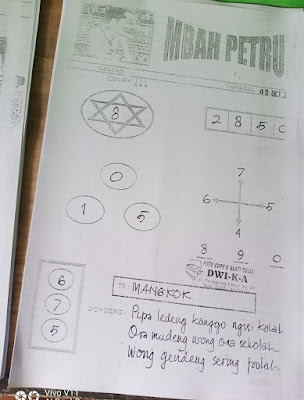 MBAH PETRU
COLOK
8
2 8 5
0
1 5
7
6 5
4
8 9 0
FOTO COPY & ALAT TULIS
DWI-K-A
6
7
5
MANGKOK
DONGENG :
Pipa ledeng kanggo ngisi kolah
Ora mudeng wong ora sekolah
Wong gendeng sering
vivo V11